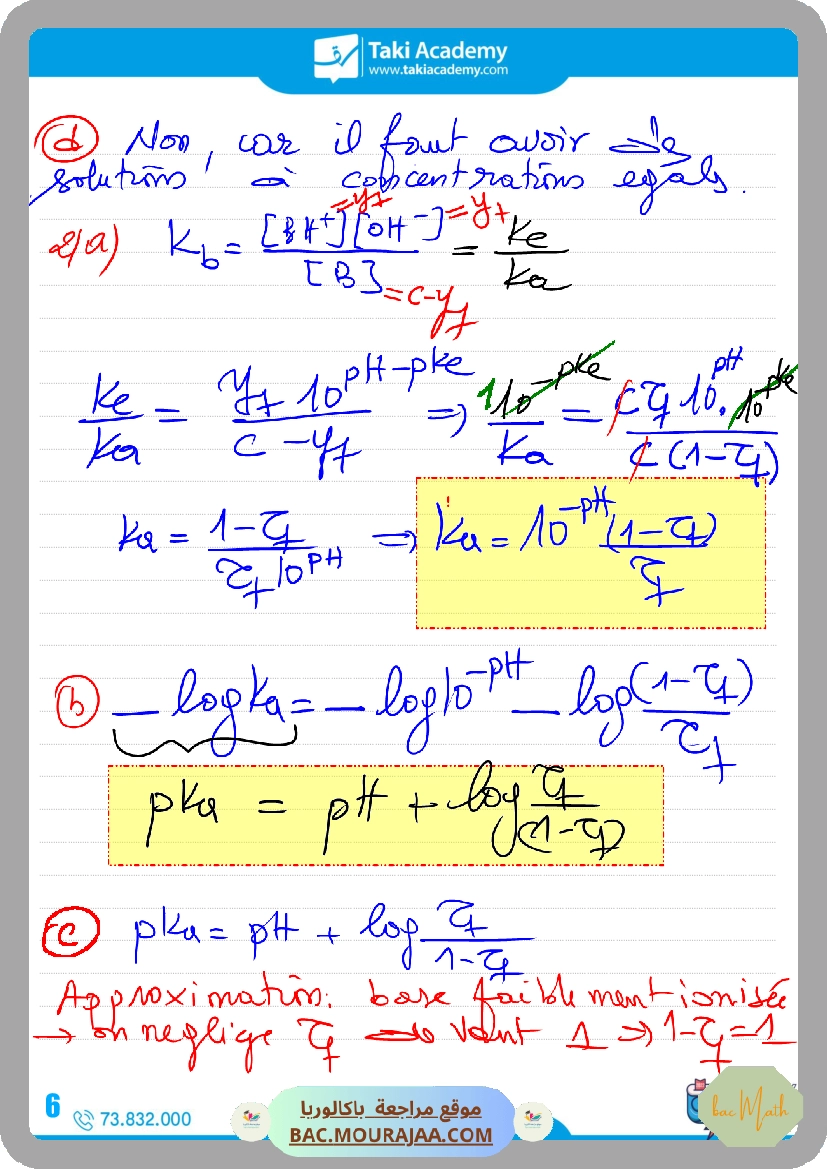 Taki Academy
www.takiacademy.com
d) Non, car il faut avoir de
solutions à concentrations egals.
2/a) Kb = [BH+] =yf [OH-] =yf / [B] =C-yf = Ke/Ka
Ke/Ka = yf 10^(pH-pKe) / (C-yf) => 1 10^(-pKe)/Ka = C τf 10^pH · 10^(-pKe) / C(1-τf)
Ka = (1-τf) / (τf 10^pH) => Ka = 10^(-pH) (1-τf) / τf
b) -log Ka = -log 10^(-pH) - log (1-τf)/τf
pKa = pH + log τf/(1-τf)
c) pKa = pH + log τf/(1-τf)
Approximation: base faiblement ionisée
→ on neglige τf devant 1 => 1-τf = 1
6 73.832.000
موقع مراجعة باكالوريا
BAC.MOURAJAA.COM
bac Math